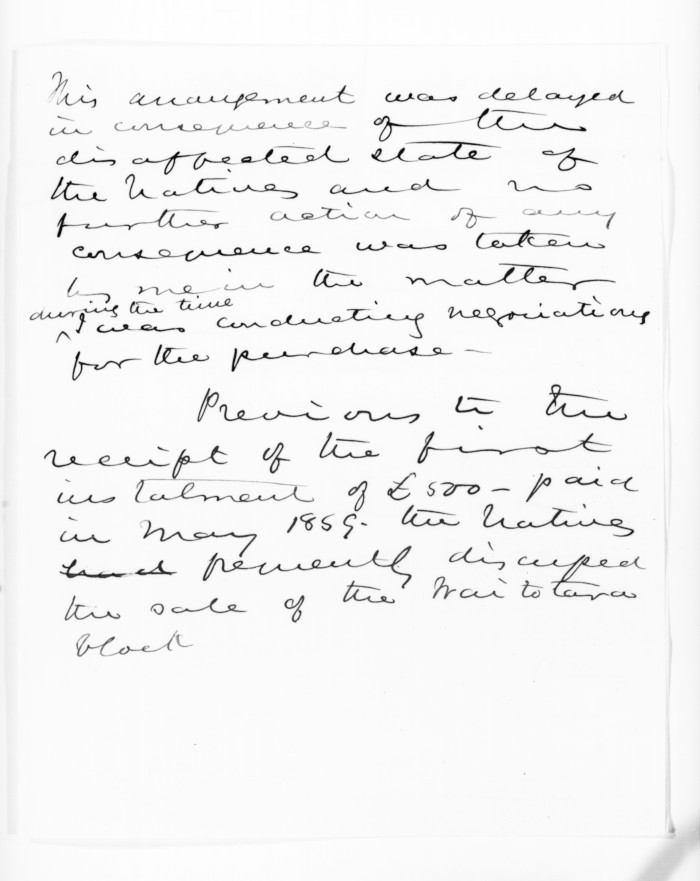 This arrangement was delayed
in consequence of the
disaffected state of
the Natives and no
further action of any
consequence was taken
by me in the matter
during the time
^ I was conducting negociations
for the purchase —
Previous to the
receipt of the first
instalment of £500 – paid
in May 1859. the Natives
had frequently discussed
the sale of the Waitotara
block